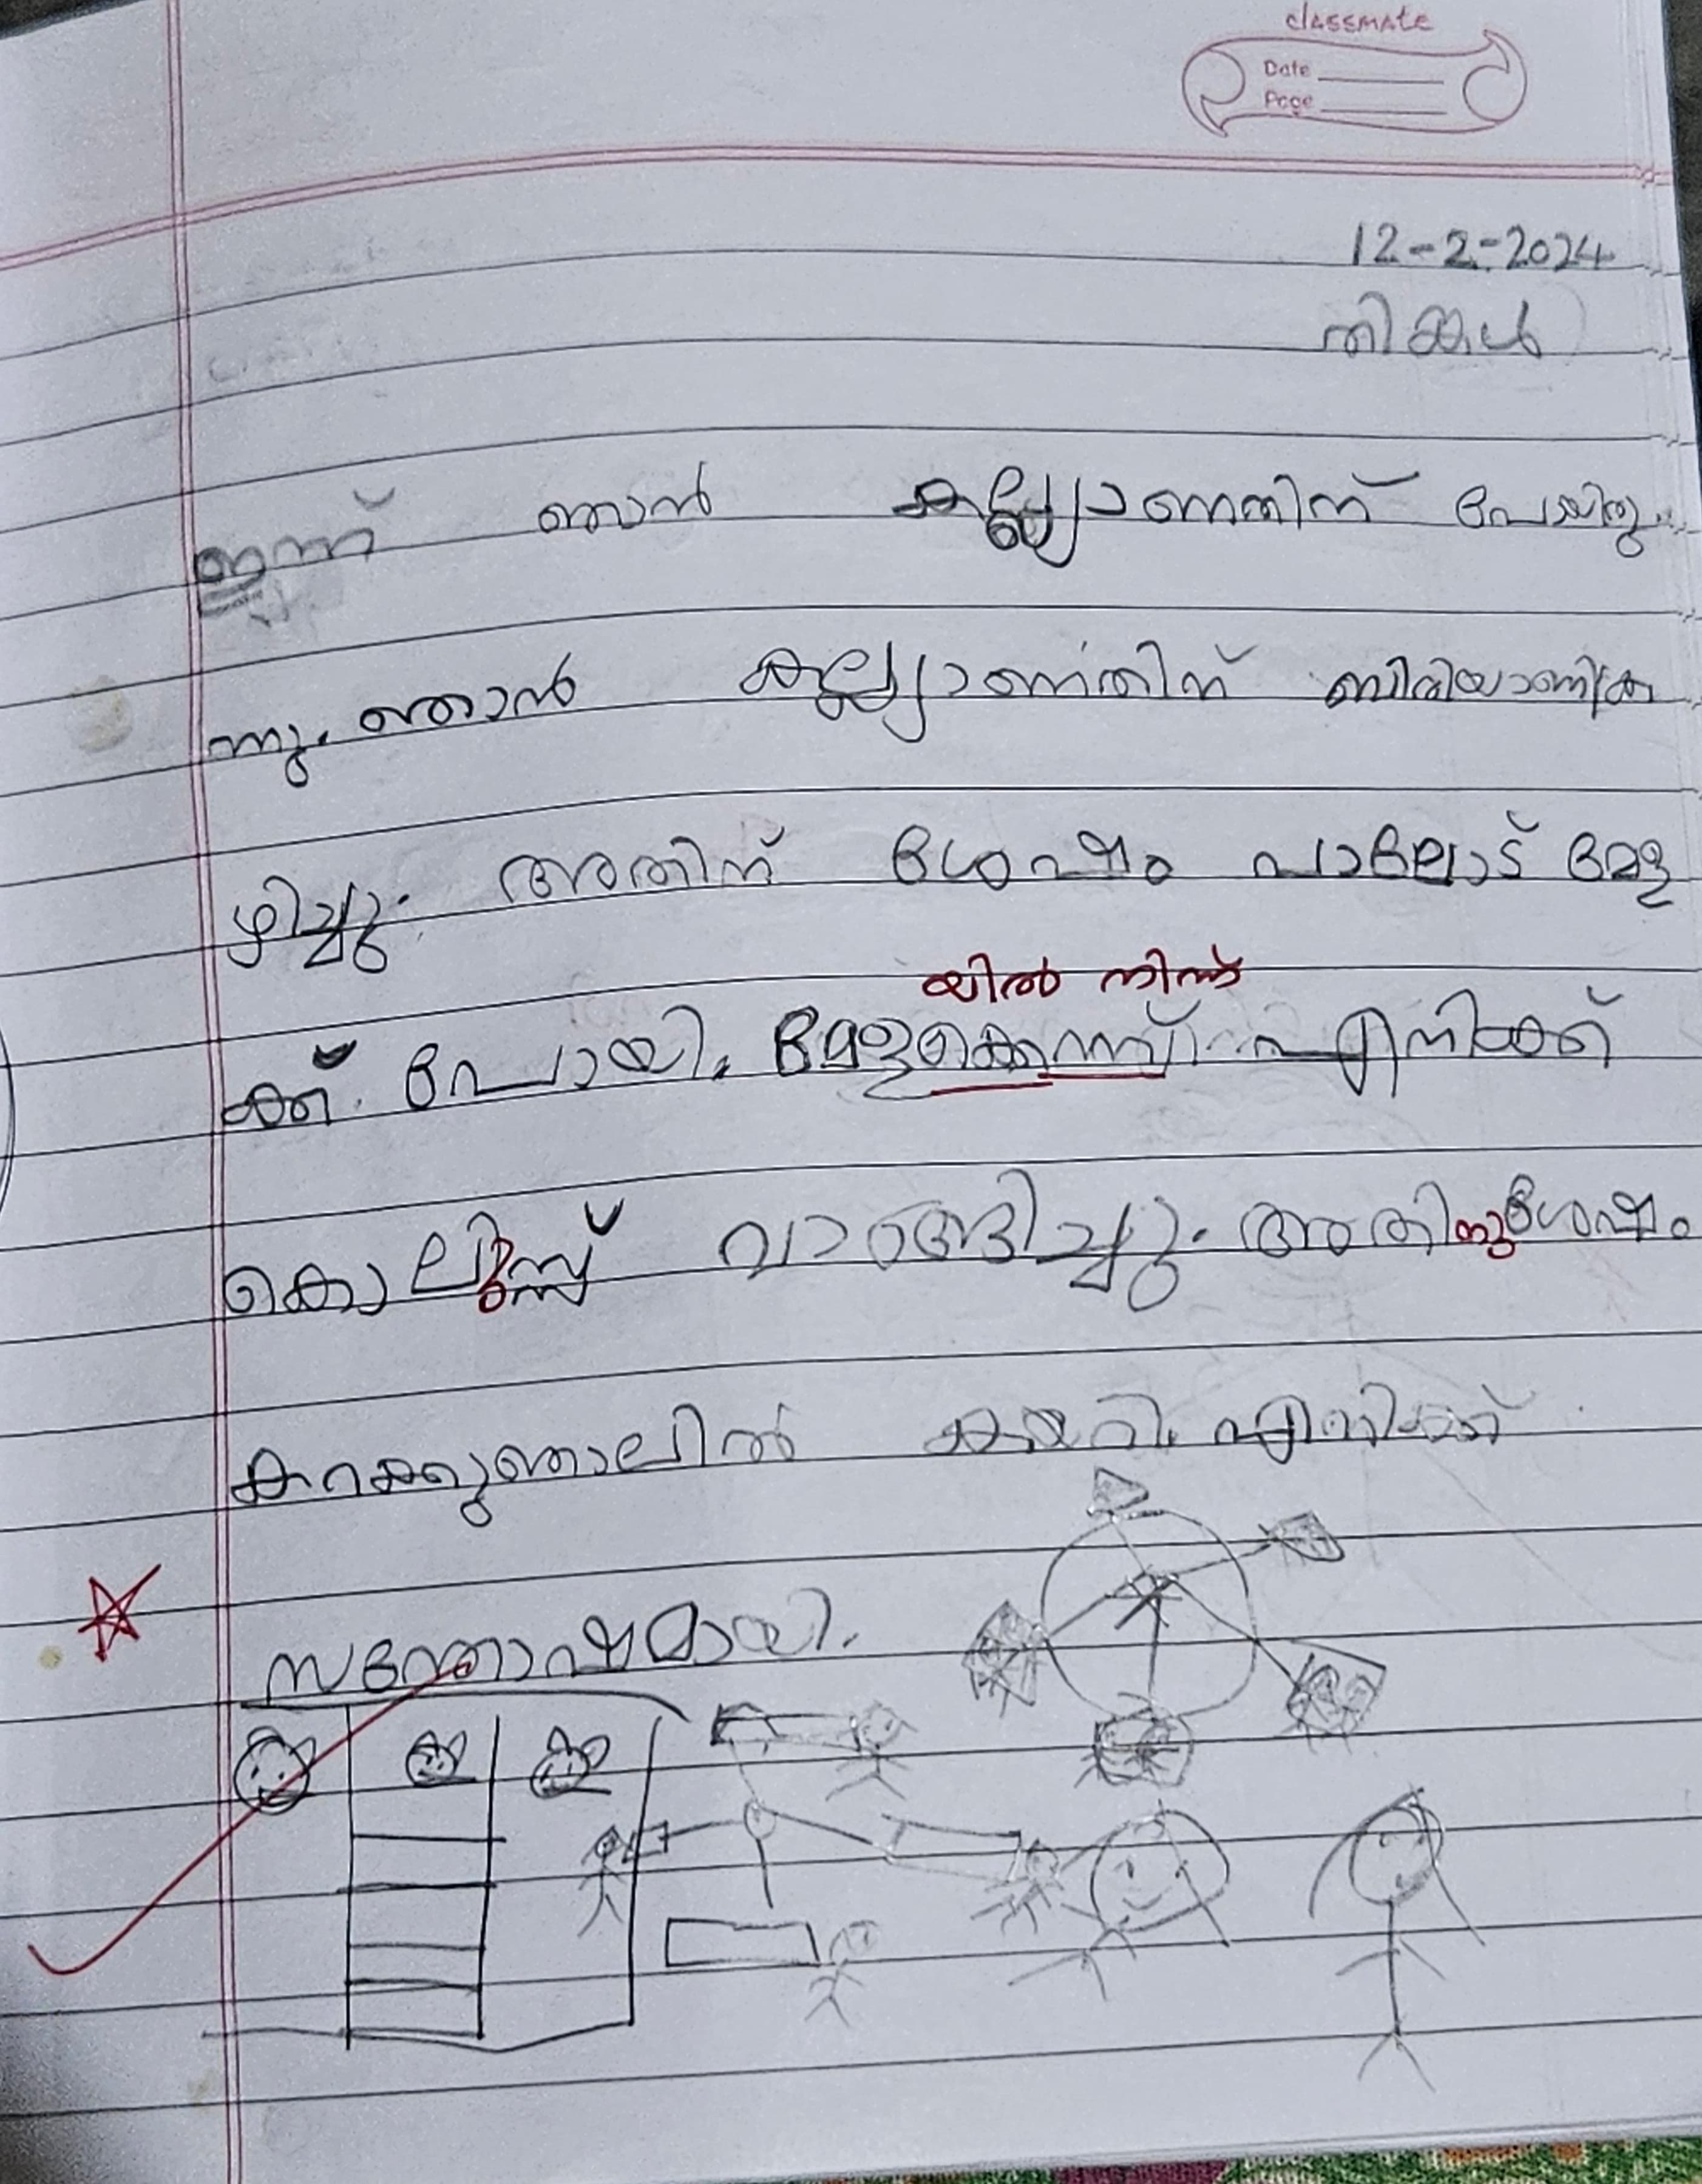 classmate
Date
Page
12-2-2024
തിങ്കൾ
ഇന്ന് ഞാൻ കല്ല്യാണതിന് പോയിരു
ന്നു. ഞാൻ കല്ല്യാണതിന് ബിരിയാണി ക
ഴിച്ചു. അതിന് ശേഷം പാലോട് മേള
ക്ക് പോയി. മേളക്കെന്ന് എനിക്ക്
യിൽ നിന്ന്
കൊലുസ്സ് വാങ്ങിച്ചു. അതിനുശേഷം
കറക്കുഞാലിൽ കയറി. എനിക്ക്
സന്തോഷമായി.